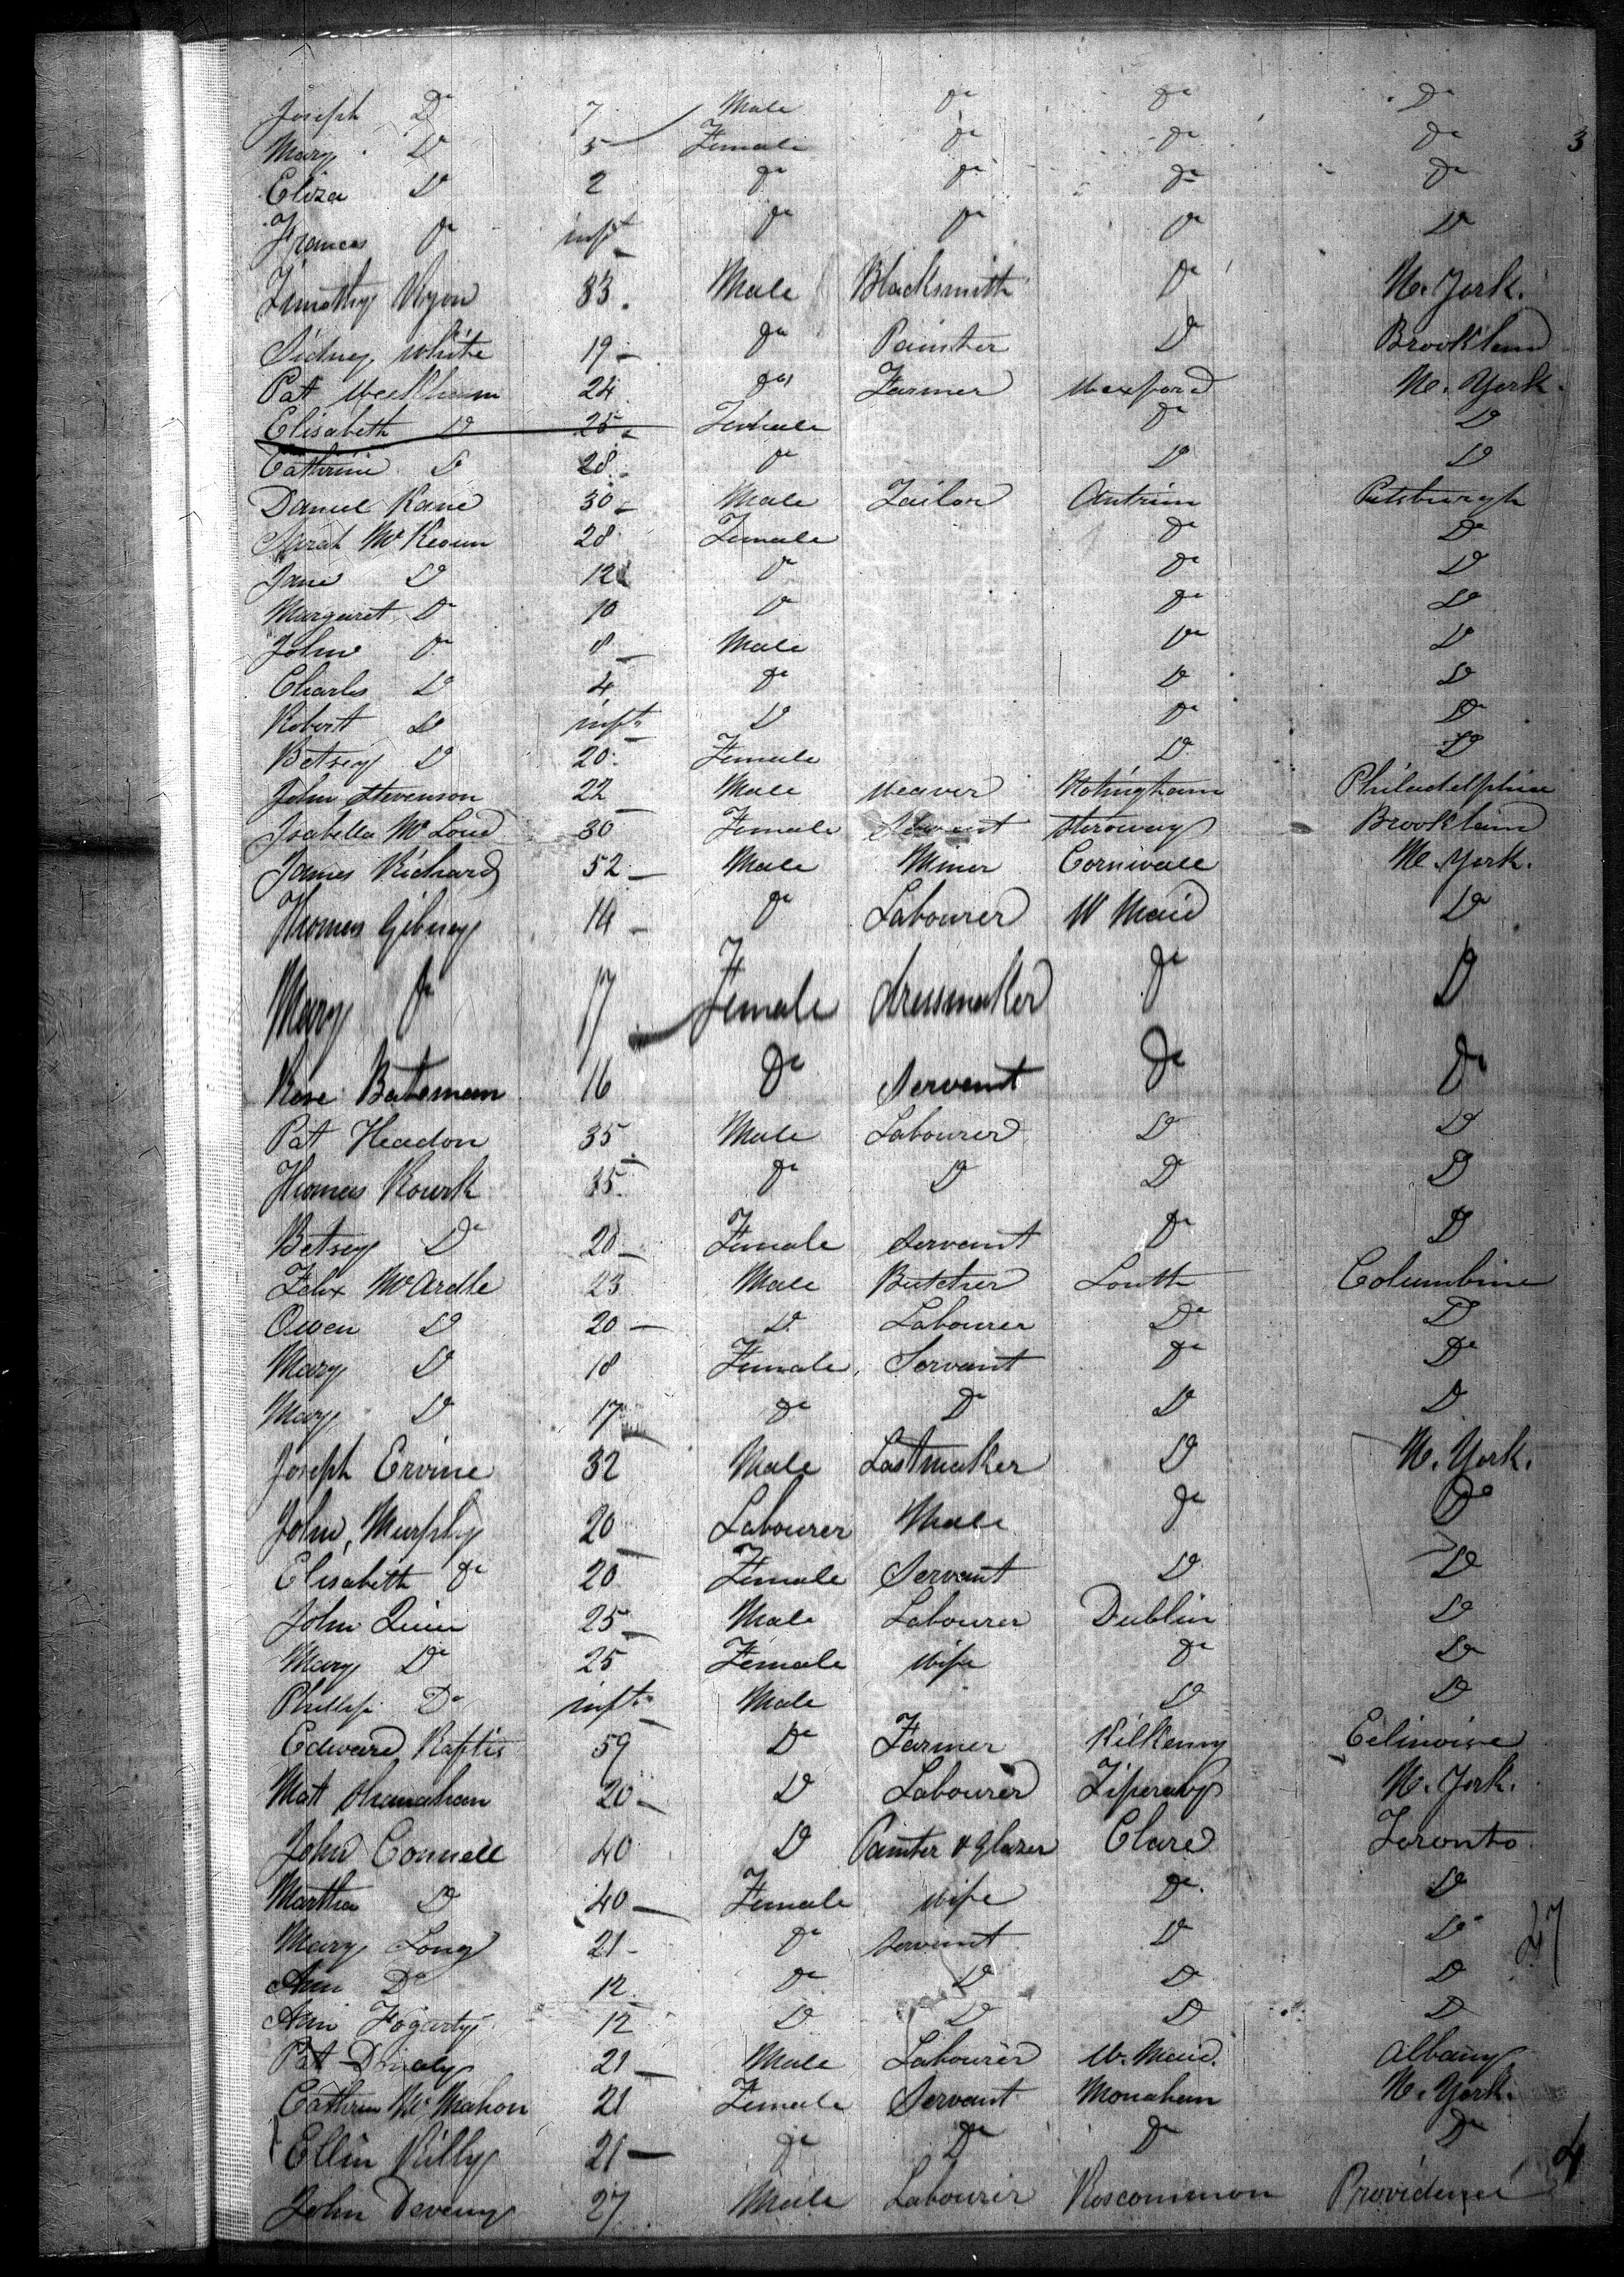 Joseph Do 7 Male Do Do Do
Mary Do 5 Female Do Do Do 3
Eliza Do 2 Do Do Do Do
Frances Do inft Do Do Do Do
Timothy 33 Male Blacksmith Do N. York.
Sidney White 19 Do Painter Do Brookland
Pat 24 Do Farmer Wexford N. York
Elisabeth Do 25 Female Do Do
Cathrine Do 28 Do Do Do
Daniel Kane 30 Male Tailor Antrim Pitsburgh
Sarah McKeown 28 Female Do Do
Jane Do 12 Do Do Do
Margaret Do 10 Do Do Do
John Do 8 Male Do Do
Charles Do 4 Do Do Do
Robert Do inft Do Do Do
Betsey Do 20 Female Do Do
John Stevenson 22 Male Weaver Notingham Philadelphia
Isabella McLoud 30 Female Servant Brookland
James Richard 52 Male Miner Cornwall N. York.
Thomas Gibney 19 Do Labourer W Maid Do
Mary Do 17 Female dressmaker Do Do
Rose Bateman 16 Do Servant Do Do
Pat Headon 35 Male Labourer Do Do
Thomas Rourk 35 Do Do Do Do
Betsey Do 20 Female Servant Do Do
Felix McArdle 23 Male Butcher Louth Columbine
Owen Do 20 Do Labourer Do Do
Mary Do 18 Female Servant Do Do
Mary Do 17 Do Do Do Do
Joseph Ervine 32 Male Lastmaker Do N. York.
John Murphy 20 Labourer Male Do Do
Elisabeth Do 20 Female Servant Do Do
John Quin 25 Male Labourer Dublin Do
Mary Do 25 Female Wife Do Do
Phillip Do inft Male Do Do
Edward Raftis 59 Do Farmer Kilkenny Eelinoise
Mat Shanahan 20 Do Labourer Tiperaly N. York.
John Connell 40 Do Painter & Glazer Clare Toronto
Martha Do 40 Female Wife Do Do
Mary Long 21 Do Servant Do Do 27
Ann Do 12 Do Do Do Do
Ann Fogarty 12 Do Do Do Do
Pat 21 Male Labourer W. Maid. Albany
Cathrin McMahon 21 Female Servant Monahan N. York.
Ellin Killy 21 Do Do Do Do 4
John Deveny 27 Male Labourer Roscommon Providence